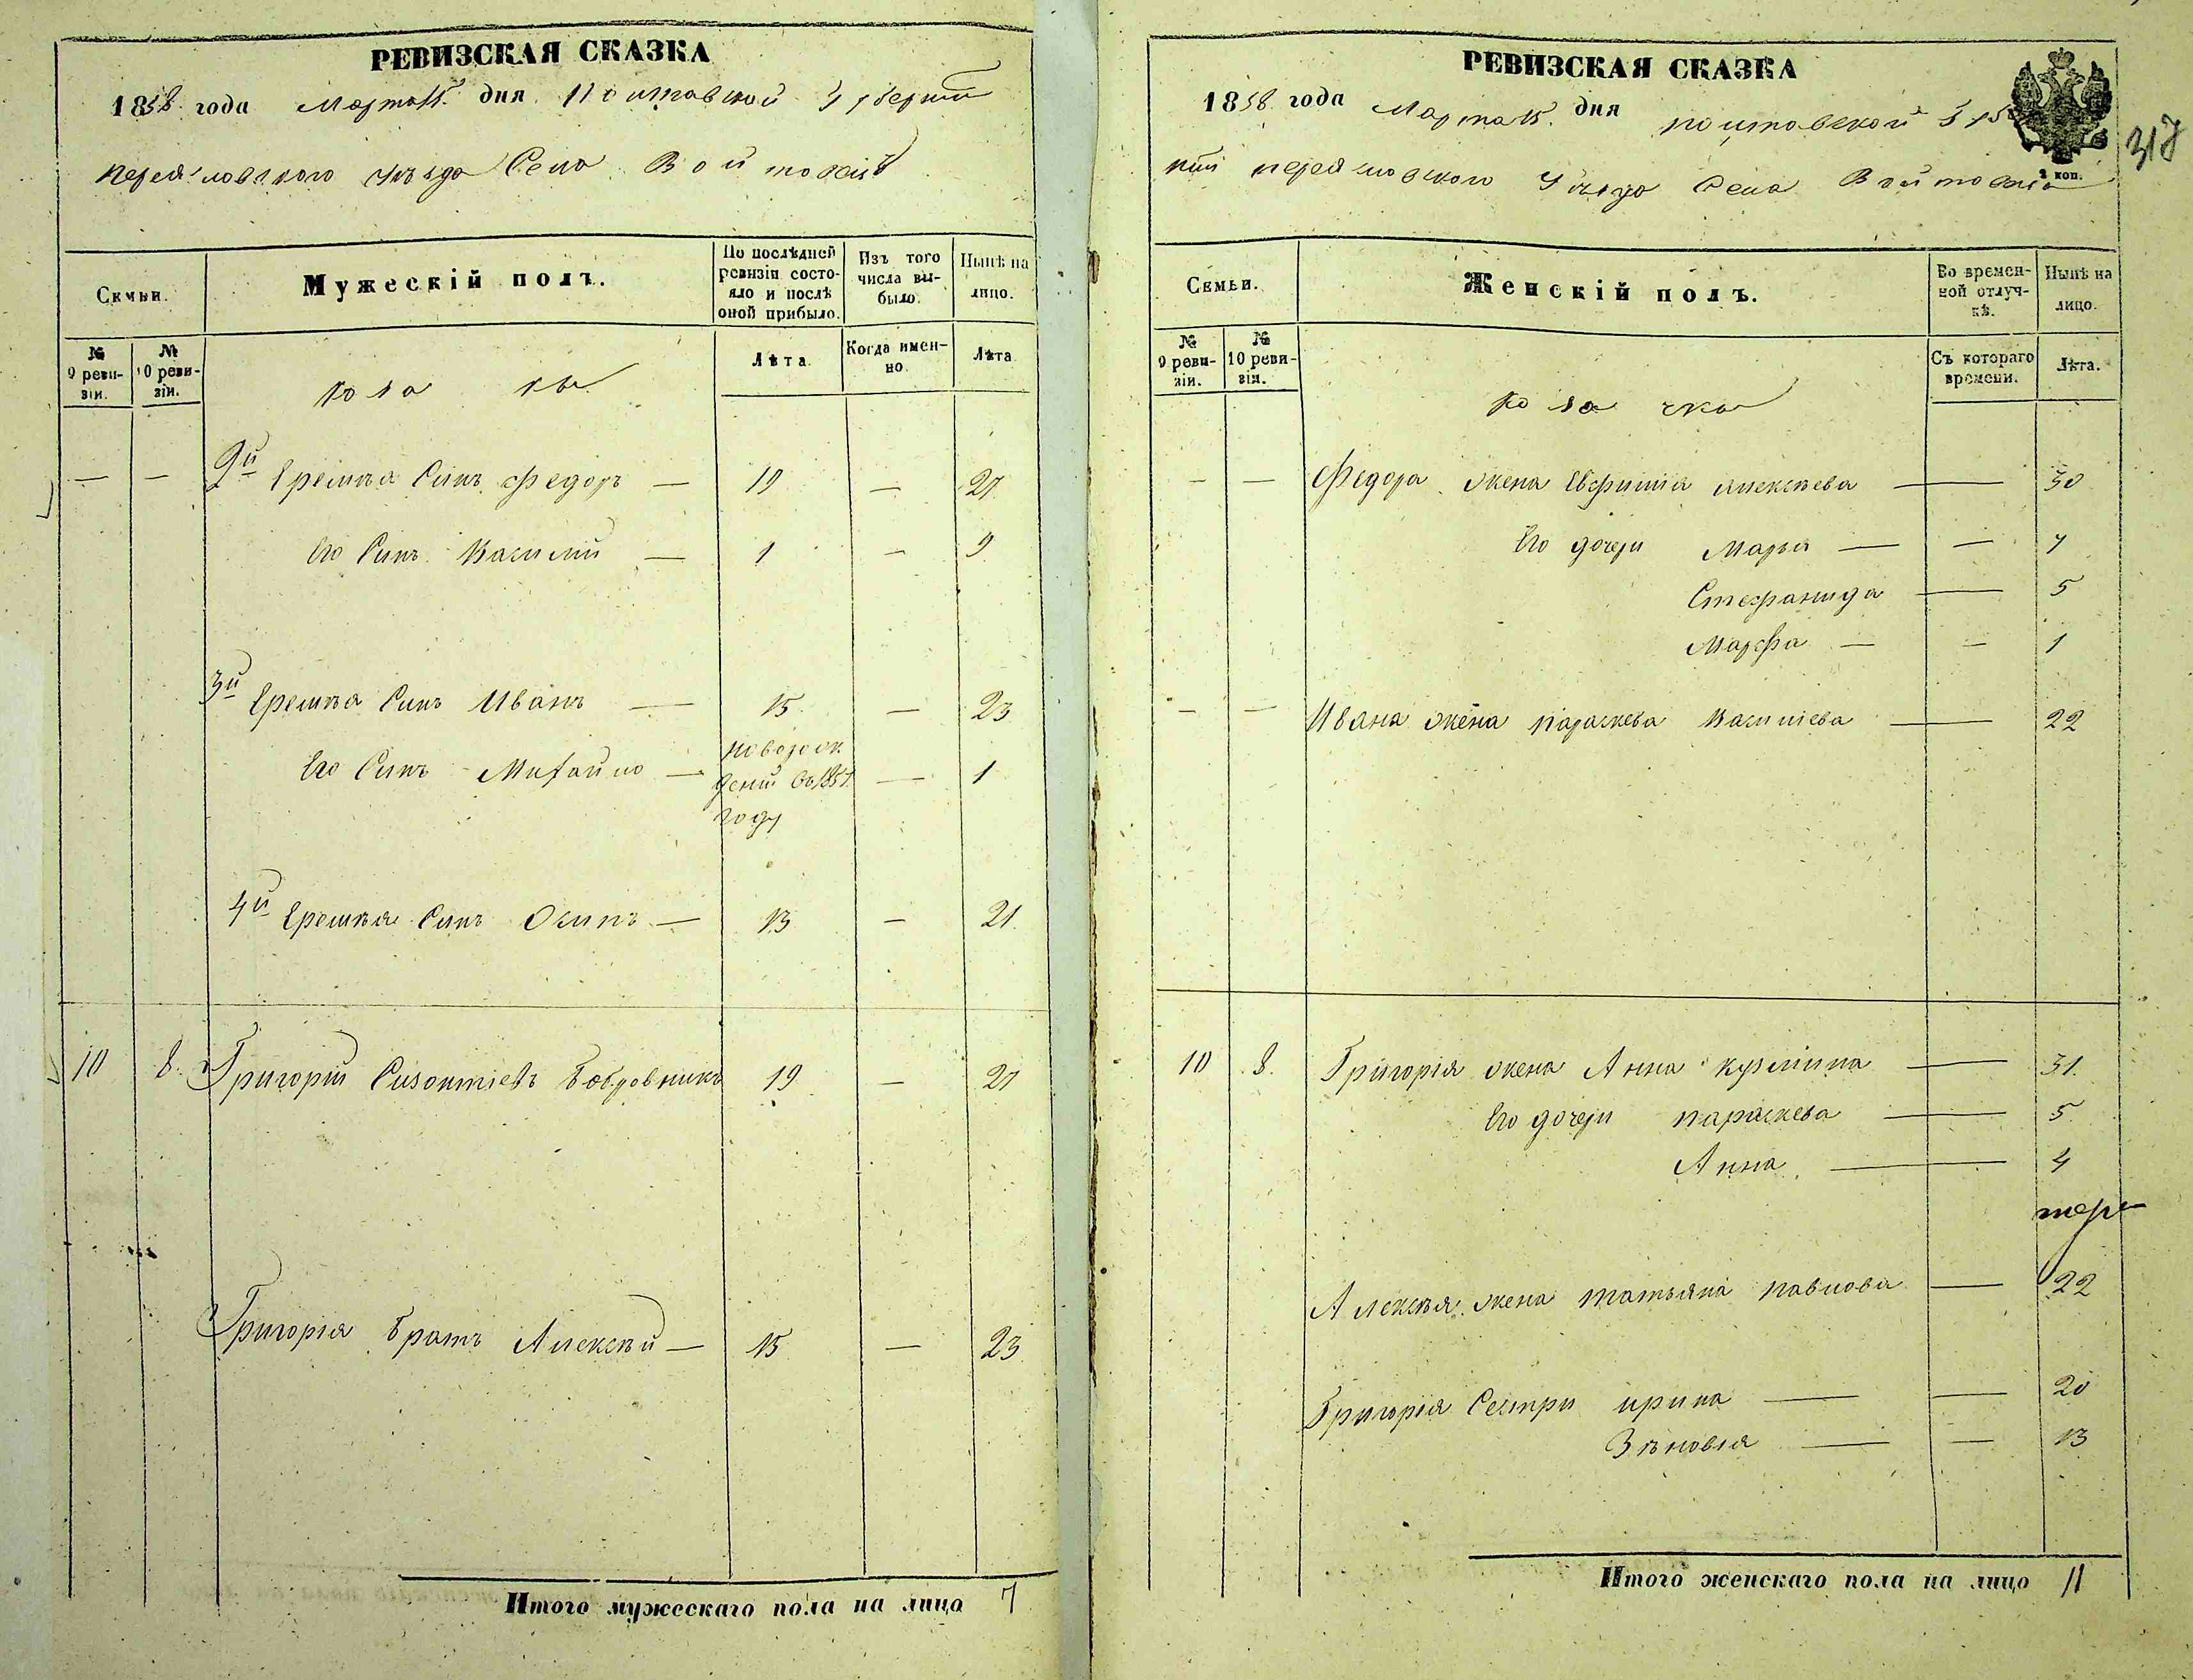 РЕВИЗСКАЯ СКАЗКА
1858 года Марта 15 дня Полтавской Губернии
Переяславского уезда Села Войтовцъ
Семьи.
Мужескій полъ.
По послѣдней ревизіи состояло и послѣ оной прибыло.
Изъ того числа выбыло.
Нынѣ на лицо.
№ 9 ревизіи.
№ 10 ревизіи.
Козаки
Лѣта.
Когда именно.
Лѣта
— — 2й Еремѣя Синъ Федоръ — 19 — 27
Его Синъ Василий — 1 — 9
3й Еремѣя Синъ Иванъ — 15 — 23
Его Синъ Михайло — новорожденый въ 1857 году — 1
4й Еремѣя Синъ Осипъ — 13 — 21
10 8. Григорий Сизонтіевъ Бобровникъ 19 — 27
Григорія братъ Алексѣй — 15 — 23
Итого мужескаго пола на лицо 7
РЕВИЗСКАЯ СКАЗКА
1858 года Марта 15. дня Полтавской
Переяславского Уезда Села
2 коп.
317
Семьи.
Женскій полъ.
Во временной отлучкѣ.
Нынѣ на лицо.
№ 9 ревизіи.
№ 10 ревизіи.
Козачки
Съ котораго времени.
Лѣта.
— — Федора жена Евфимія Алексѣева — 30
Его дочери Марья — — 7
Стефанида — 5
Марфа — — 1
— — Ивана жена Параскева Василіева — 22
10 8. Григорія жена Анна Кузмина — 31.
Его дочери Параскева — 5
Анна — 4
Алексѣя жена Татьяна Павлова — 22
Григорія Сестри Ирина — — 20
Зѣновія — — 13
Итого женскаго пола на лицо 11